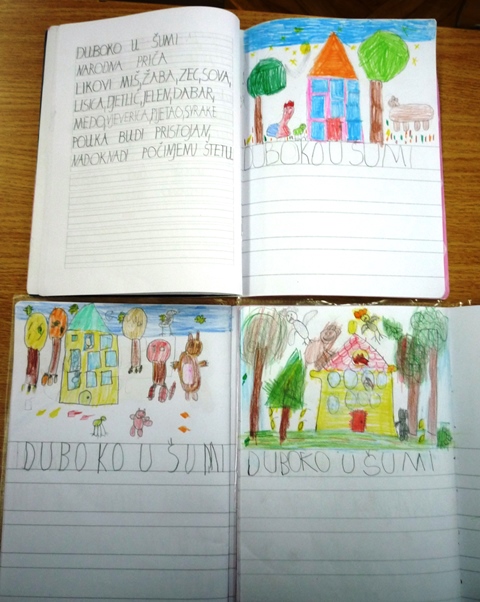 DUBOKO U ŠUMI
NARODNA PRIČA
LIKOVI MIŠ, ŽABA, ZEC, SOVA,
LISICA, DJETLIĆ, JELEN, DABAR,
MEDO, VJEVERICA, PJETAO, SVRAKE
POUKA BUDI PRISTOJAN,
NADOKNADI POČINJENU ŠTETU
DUBOKO U ŠUMI
DUBOKO U ŠUMI
DUBOKO U ŠUMI